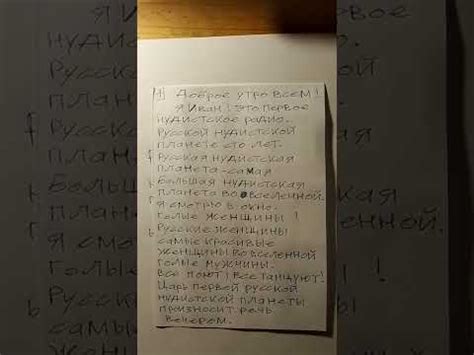 1) Доброе утро всем!
Я Иван! Это первое
нудистское радио.
Русской нудистской
планете сто лет.
Русская нудистская
планета-самая
большая нудистская
планета во вселенной.
Я смотрю в окно.
Голые женщины!
Русские женщины
самые красивые
женщины во вселенной
Голые мужчины.
Все поют! Все танцуют!
Царь первой русской
нудистской планеты
произносит речь
вечером.